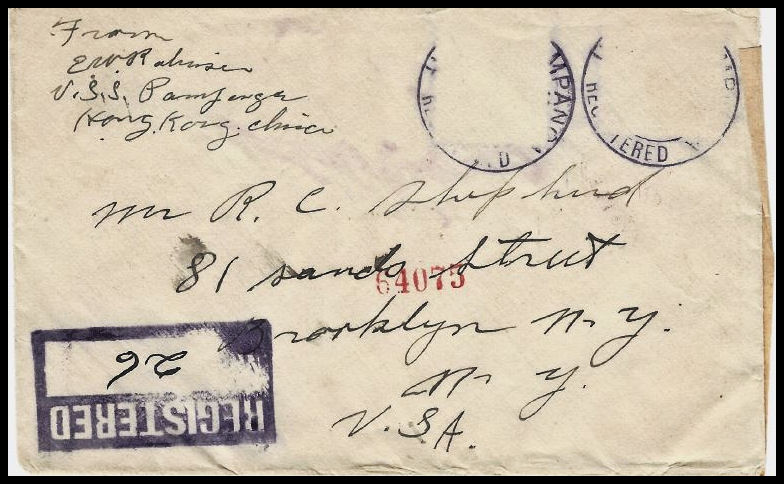 From
E W Robinson
U.S.S. Pampanga
Hong Kong. China
MPANGA
REGISTERED
Mr R. C. Shepherd
81 Sands Street
64075
Brooklyn N. Y.
N. Y.
U.S.A.
26
REGISTERED